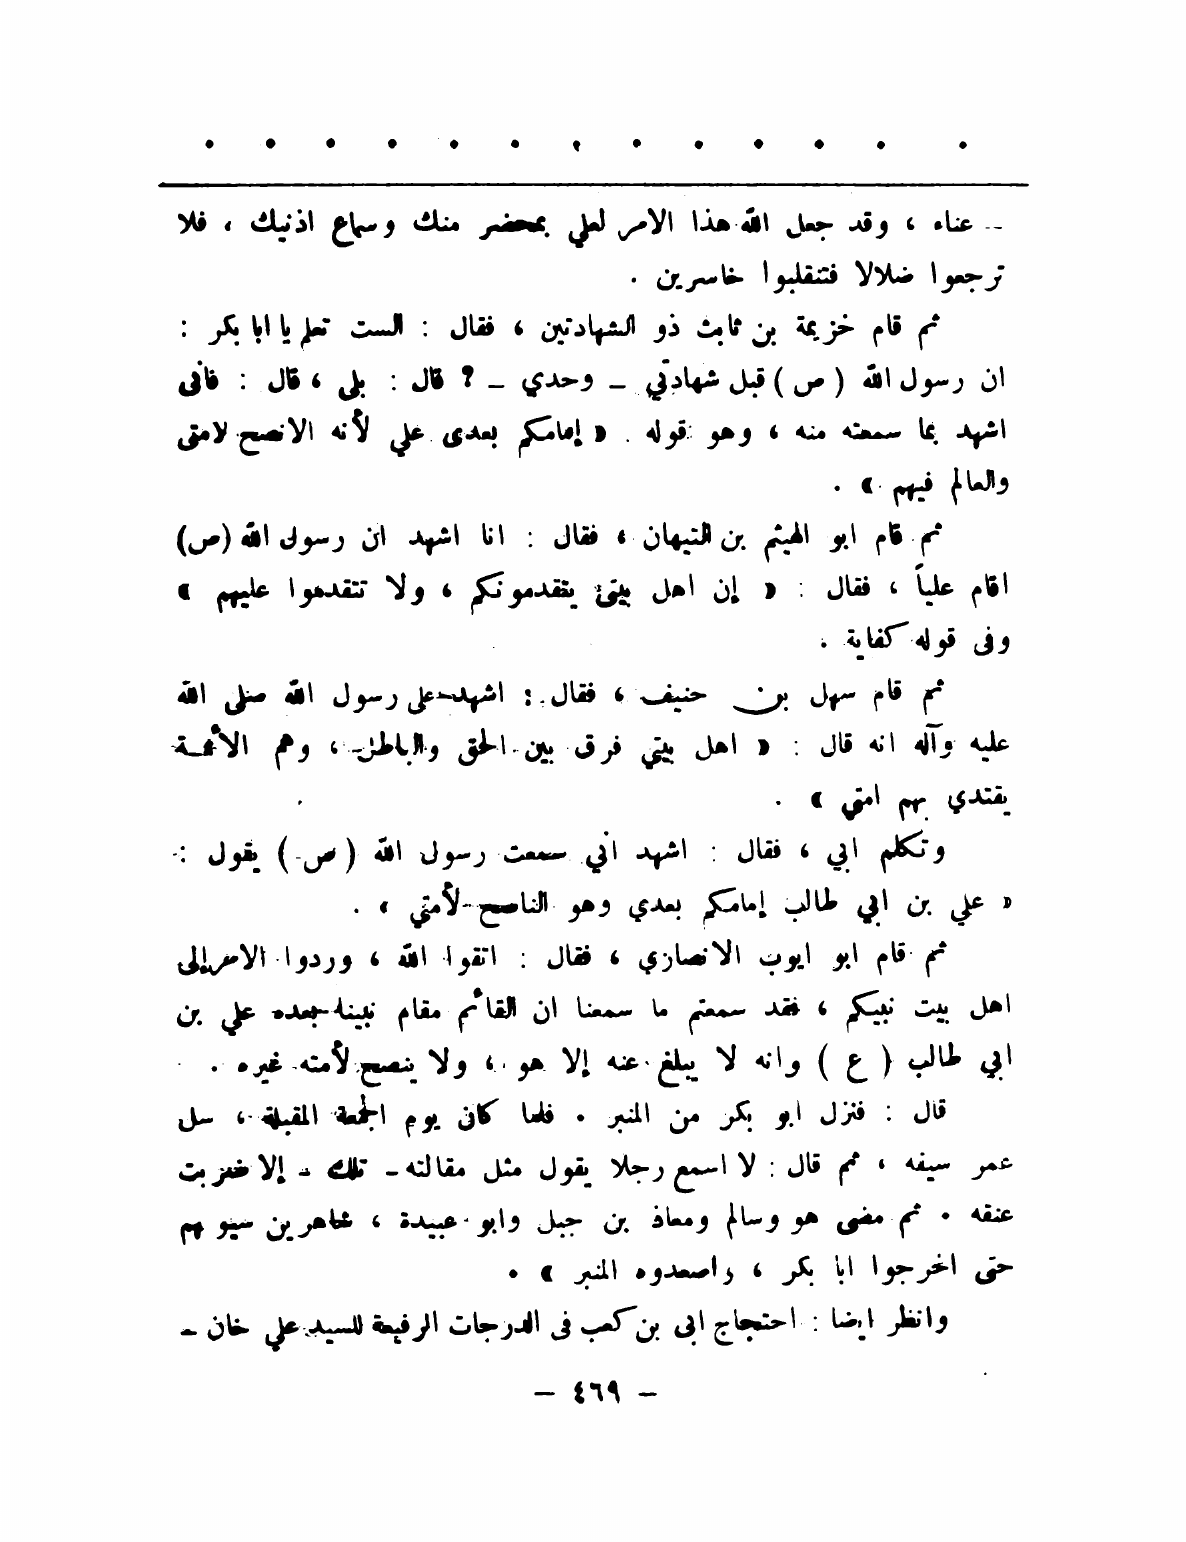 -- عناء ، وقد جعل الله هذا الامر لعلي بمحضر منك وسماع اذنيك ، فلا
ترجعوا ضلالا فتنقلبوا خاسرين .
ثم قام خزيمة بن ثابت ذو الشهادتين ، فقال : الست تعلم يا ابا بكر :
ان رسول الله ( ص ) قبل شهادتي - وحدي - ? قال : بلى ، قال : فانى
اشهد بما سمعته منه ، وهو قوله . « إمامكم بعدى علي لأنه الانصح لامتى
والعالم فيهم » .
ثم قام ابو الهيثم بن التيهان ، فقال : انا اشهد ان رسول الله (ص)
اقام علياً ، فقال : « إن اهل بيتي يتقدمونكم ، ولا تتقدموا عليهم »
وفى قوله كفاية .
ثم قام سهل بن حنيف ، فقال : اشهد على رسول الله صلى الله
عليه وآله انه قال : « اهل بيتي فرق بين الحق والباطل ، وهم الأئمـة
يقتدي بهم امتي » .
وتكلم ابي ، فقال : اشهد اني سمعت رسول الله ( ص ) يقول :
« علي بن ابي طالب إمامكم بعدي وهو الناصح لأمتي » .
ثم قام ابو ايوب الانصاري ، فقال : اتقوا الله ، وردوا الامر إلى
اهل بيت نبيكم ، فقد سمعتم ما سمعنا ان القائم مقام نبينا بعده علي بن
ابي طالب ( ع ) وانه لا يبلغ عنه إلا هو ، ولا ينصح لأمته غيره .
قال : فنزل ابو بكر من المنبر . فلما كان يوم الجمعة المقبلة ، سل
عمر سيفه ، ثم قال : لا اسمع رجلا يقول مثل مقالته - تلك - إلا ضربت
عنقه . ثم مضى هو وسالم ومعاذ بن جبل وابو عبيدة ، شاهرين سيوفهم
حتى اخرجوا ابا بكر ، واصعدوه المنبر » .
وانظر ايضا : احتجاج ابى بن كعب فى الدرجات الرفيعة للسيد علي خان -
- ٤٦٩ -